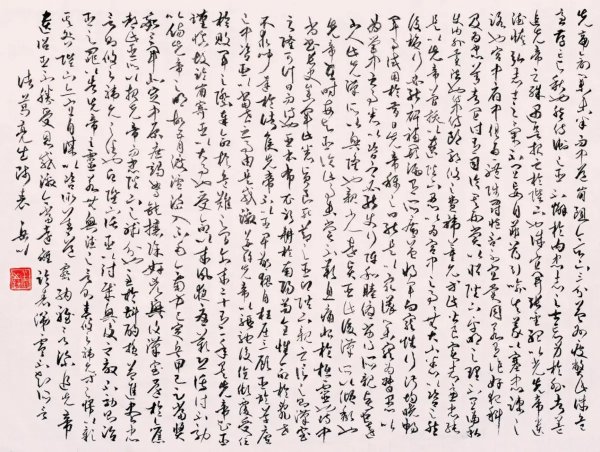 先帝創業未半而中道崩殂今天下三分益州疲弊此誠危
急存亡之秋也然侍衛之臣不懈於內忠志之士忘身於外者蓋
追先帝之殊遇欲報之於陛下也誠宜開張聖聽以光先帝遺
德恢弘志士之氣不宜妄自菲薄引喻失義以塞忠諫之
路也宮中府中俱為一體陟罰臧否不宜異同若有作奸犯科
及為忠善者宜付有司論其刑賞以昭陛下平明之理不宜偏私
使內外異法也侍中侍郎郭攸之費禕董允等此皆良實志慮忠純
是以先帝簡拔以遺陛下愚以為宮中之事事無大小悉以咨之然
後施行必能裨補闕漏有所廣益將軍向寵性行淑均曉暢
軍事試用於昔日先帝稱之曰能是以眾議舉寵為督愚以
為營中之事悉以咨之必能使行陣和睦優劣得所親賢臣遠
小人此先漢所以興隆也親小人遠賢臣此後漢所以傾頹也
先帝在時每與臣論此事未嘗不歎息痛恨於桓靈也侍中
尚書長史參軍此悉貞良死節之臣願陛下親之信之則漢室
之隆可計日而待也臣本布衣躬耕於南陽苟全性命於亂世
不求聞達於諸侯先帝不以臣卑鄙猥自枉屈三顧臣於草廬
之中咨臣以當世之事由是感激遂許先帝以驅馳後值傾覆受任
於敗軍之際奉命於危難之間爾來二十有一年矣先帝知臣
謹慎故臨崩寄臣以大事也受命以來夙夜憂歎恐託付不效
以傷先帝之明故五月渡瀘深入不毛今南方已定兵甲已足當獎
率三軍北定中原庶竭駑鈍攘除奸凶興復漢室還於舊
都此臣所以報先帝而忠陛下之職分也至於斟酌損益進盡忠言
則攸之禕允之任也願陛下託臣以討賊興復之效不效則治
臣之罪以告先帝之靈若無興德之言則責攸之禕允等之慢以彰
其咎陛下亦宜自謀以咨諏善道察納雅言深追先帝
遺詔臣不勝受恩感激今當遠離臨表涕零不知所言
諸葛亮出師表